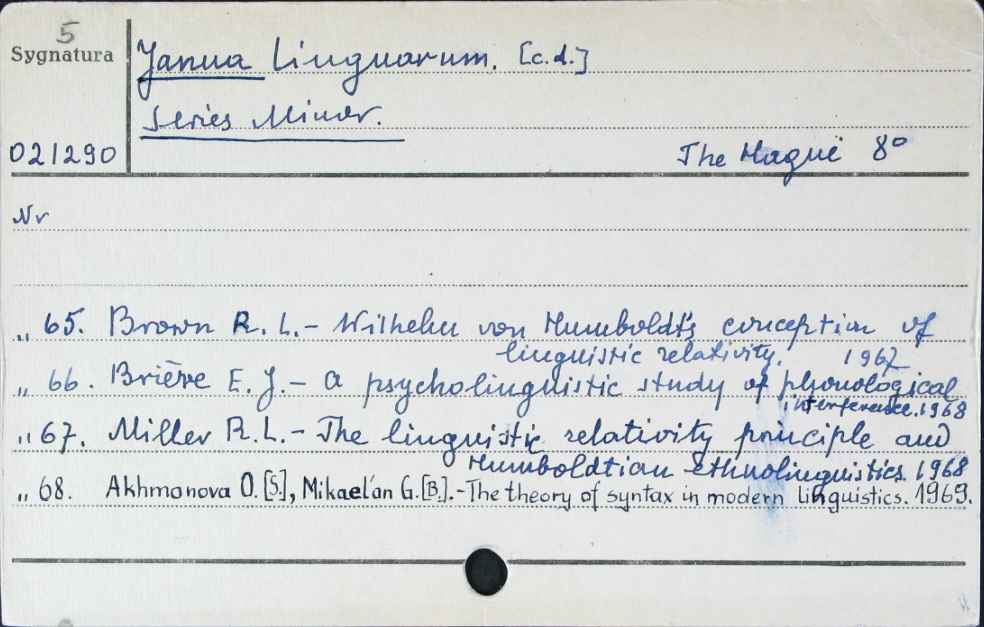 5
Sygnatura
Janua Linguarum. [c.d.]
Series Minor.
021290
The Hague 8°
Nr
„ 65. Brown R. L. - Wilhelm von Humboldt's conception of
linguistic relativity. 1967
„ 66. Brière E. J. - A psycholinguistic study of phonological
interference. 1968
„ 67. Miller R.L. - The linguistic relativity principle and
Humboldtian ethnolinguistics. 1968
„ 68. Akhmanova O. [S.], Mikael'an G. [B.]. - The theory of syntax in modern linguistics. 1969.